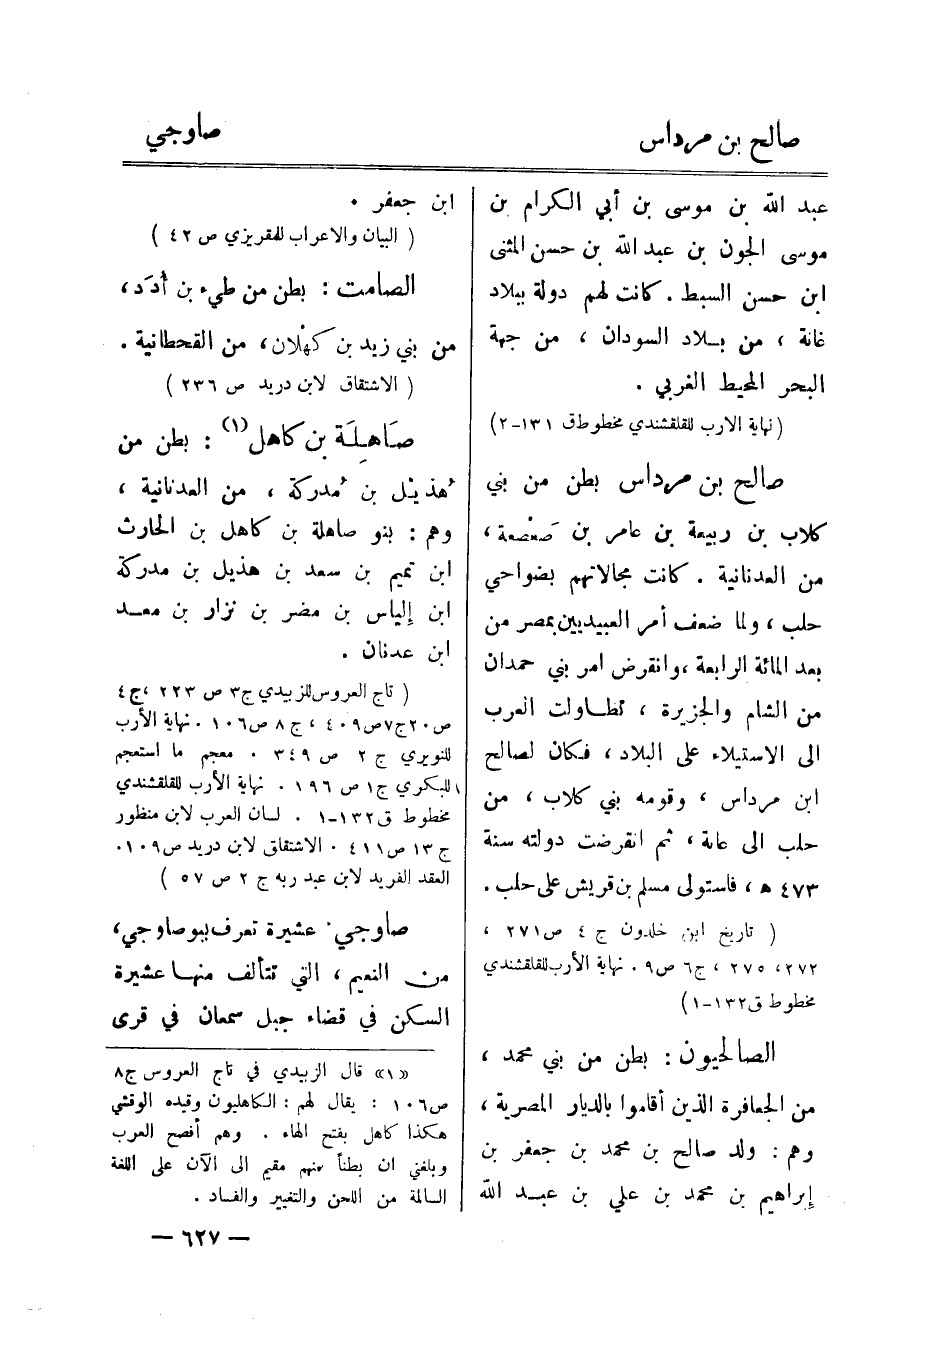 صالح بن مرداس
صاوجي
عبد الله بن موسى بن أبي الكرام بن
موسى الجون بن عبد الله بن حسن المثنى
ابن حسن السبط . كانت لهم دولة ببلاد
غانة ، من بلاد السودان ، من جهة
البحر المحيط الغربي .
( نهاية الارب للقلقشندي مخطوط ق ١٣١-٢)
صالح بن مرداس بطن من بني
كلاب بن ربيعة بن عامر بن صَعْصعة ،
من العدنانية . كانت مجالاتهم بضواحي
حلب ، ولما ضعف أمر العبيديين بمصر من
بعد المائة الرابعة ، وانقرض امر بني حمدان
من الشام والجزيرة ، تطاولت العرب
الى الاستيلاء على البلاد ، فكان لصالح
ابن مرداس ، وقومه بني كلاب ، من
حلب الى عانة ، ثم انقرضت دولته سنة
٤٧٣ ه ، فاستولى مسلم بن قريش على حلب .
( تاريخ ابن خلدون ج ٤ ص ٢٧١ ،
٢٧٢، ٢٧٥ ، ج٦ ص٩ . نهاية الأرب للقلقشندي
مخطوط ق ١٣٢-١)
الصالحيون : بطن من بني محمد ،
من الجعافرة الذين أقاموا بالديار المصرية ،
وهم : ولد صالح بن محمد بن جعفر بن
إبراهيم بن محمد بن علي بن عبد الله
ابن جعفر .
( البيان والاعراب للمقريزي ص ٤٢ )
الصامت : بطن من طيء بن أُدَد ،
من بني زيد بن كهْلان ، من القحطانية .
( الاشتقاق لابن دريد ص ٢٣٦ )
صَاهِلَة بن كاهل (١) : بطن من
هُذيْل بن مُدركة ، من العدنانية ،
وهم : بنو صاهلة بن كاهل بن الحارث
ابن تميم بن سعد بن هذيل بن مدركة
ابن إلياس بن مضر بن نزار بن معد
ابن عدنان .
( تاج العروس للزبيدي ج٣ ص ٢٢٣ ، ج٤
ص٢٠ ج٧ ص٤٠٩ ، ج ٨ ص١٠٦ . نهاية الأرب
للنويري ج ٢ ص ٣٤٩ . معجم ما استعجم
للبكري ج١ ص ١٩٦ . نهاية الأرب للقلقشندي
مخطوط ق١٣٢-١ . لسان العرب لابن منظور
ج ١٣ ص ٤١١ . الاشتقاق لابن دريد ص١٠٩ .
العقد الفريد لابن عبد ربه ج ٢ ص ٥٧ )
صاوجي : عشيرة تعرف ببوصاوجي ،
من النعيم ، التي تتألف منها عشيرة
السكن في قضاء جبل سمعان في قرى
«١» قال الزبيدي في تاج العروس ج٨
ص١٠٦ : يقال لهم : الكاهليون وقيده الوقشي
هكذا كاهل بفتح الهاء . وهم أفصح العرب
وبلغني ان بطناً منهم مقيم الى الآن على اللغة
السالمة من اللحن والتغيير والفساد .
— ٦٢٧ —